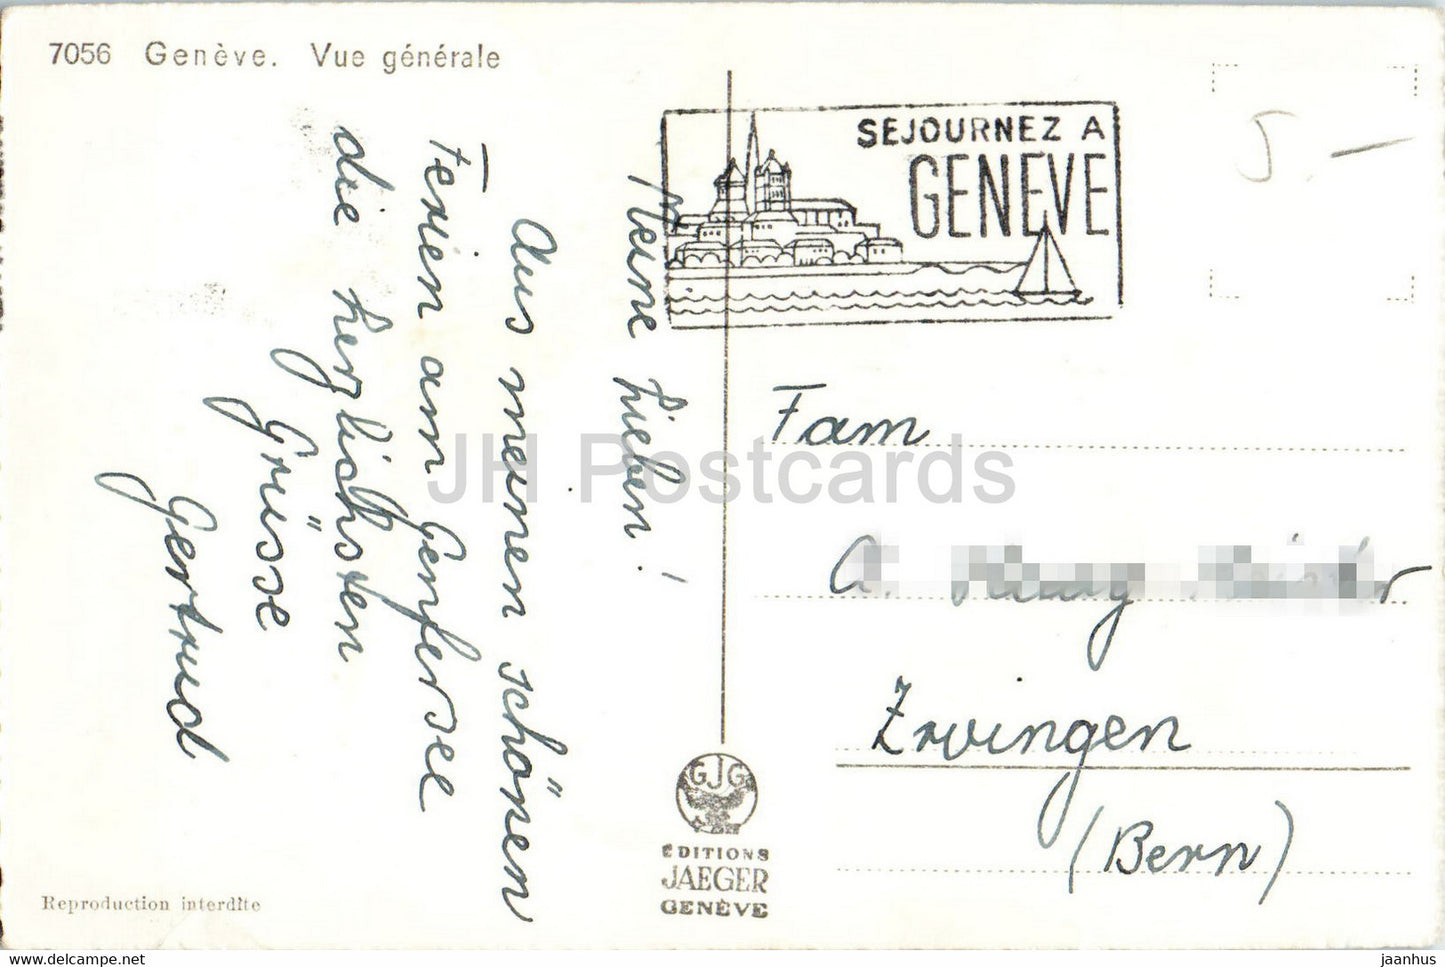 7056 Genève. Vue générale
SEJOURNEZ A
GENEVE
5.—
Meine Lieben!
Aus meinen schönen
Ferien am Genfersee
die herzlichsten
Grüsse
Gertrud
Fam
A.
Zwingen
(Bern)
GJG
ÉDITIONS
JAEGER
GENÈVE
Reproduction interdite
JH Postcards
www.delcampe.net
jaanhus